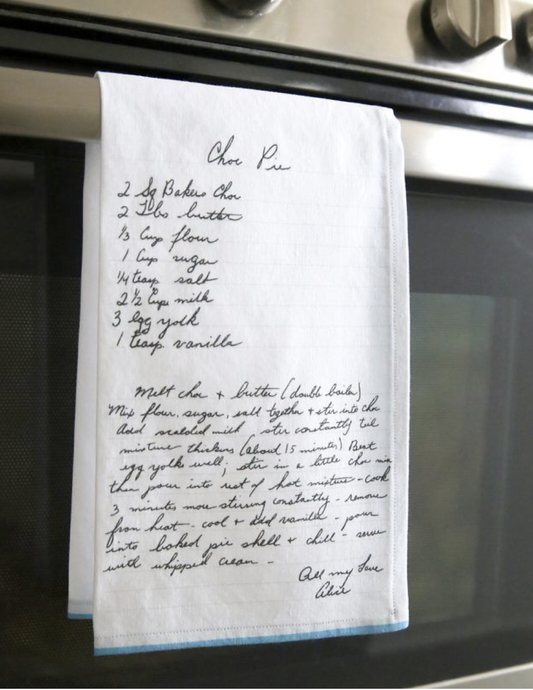 Choc Pie
2 Sq Bakers Choc
2 Tbs butter
1/3 Cup flour
1 Cup sugar
1/4 teasp salt
2 1/2 Cups milk
3 egg yolk
1 teasp vanilla
Melt choc + butter (double boiler)
Mix flour, sugar, salt together + stir into choc
Add scalded milk, stir constantly til
mixture thickens (about 15 minutes) Beat
egg yolks well; stir in a little choc mix
then pour into rest of hot mixture - cook
3 minutes more stirring constantly - remove
from heat - cool + add vanilla - pour
into baked pie shell + chill - serve
with whipped cream -
All my Love
Alice